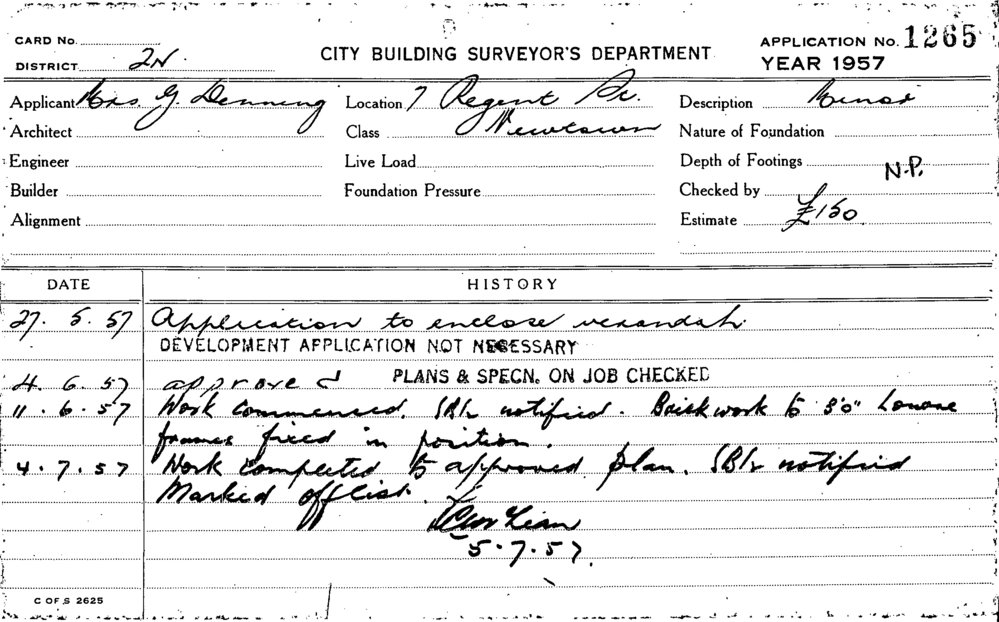 CARD No.
DISTRICT 2N.
CITY BUILDING SURVEYOR'S DEPARTMENT
APPLICATION No. 1265
YEAR 1957
Applicant Mrs G. Denning
Location 7 Regent St.
Description Minor
Architect
Class Newtown
Nature of Foundation
Engineer
Live Load
Depth of Footings N.P.
Builder
Foundation Pressure
Checked by
Alignment
Estimate £150
DATE HISTORY
27. 5. 57 Application to enclose verandah
DEVELOPMENT APPLICATION NOT NECESSARY
4. 6. 57 approved PLANS & SPECN. ON JOB CHECKED
11. 6. 57 Work commenced. notified. Brickwork to 3'0" Louvre
frames fixed in position.
4. 7. 57 Work completed to approved plan. notified
Marked off list.
5. 7. 57.
C OF S 2625